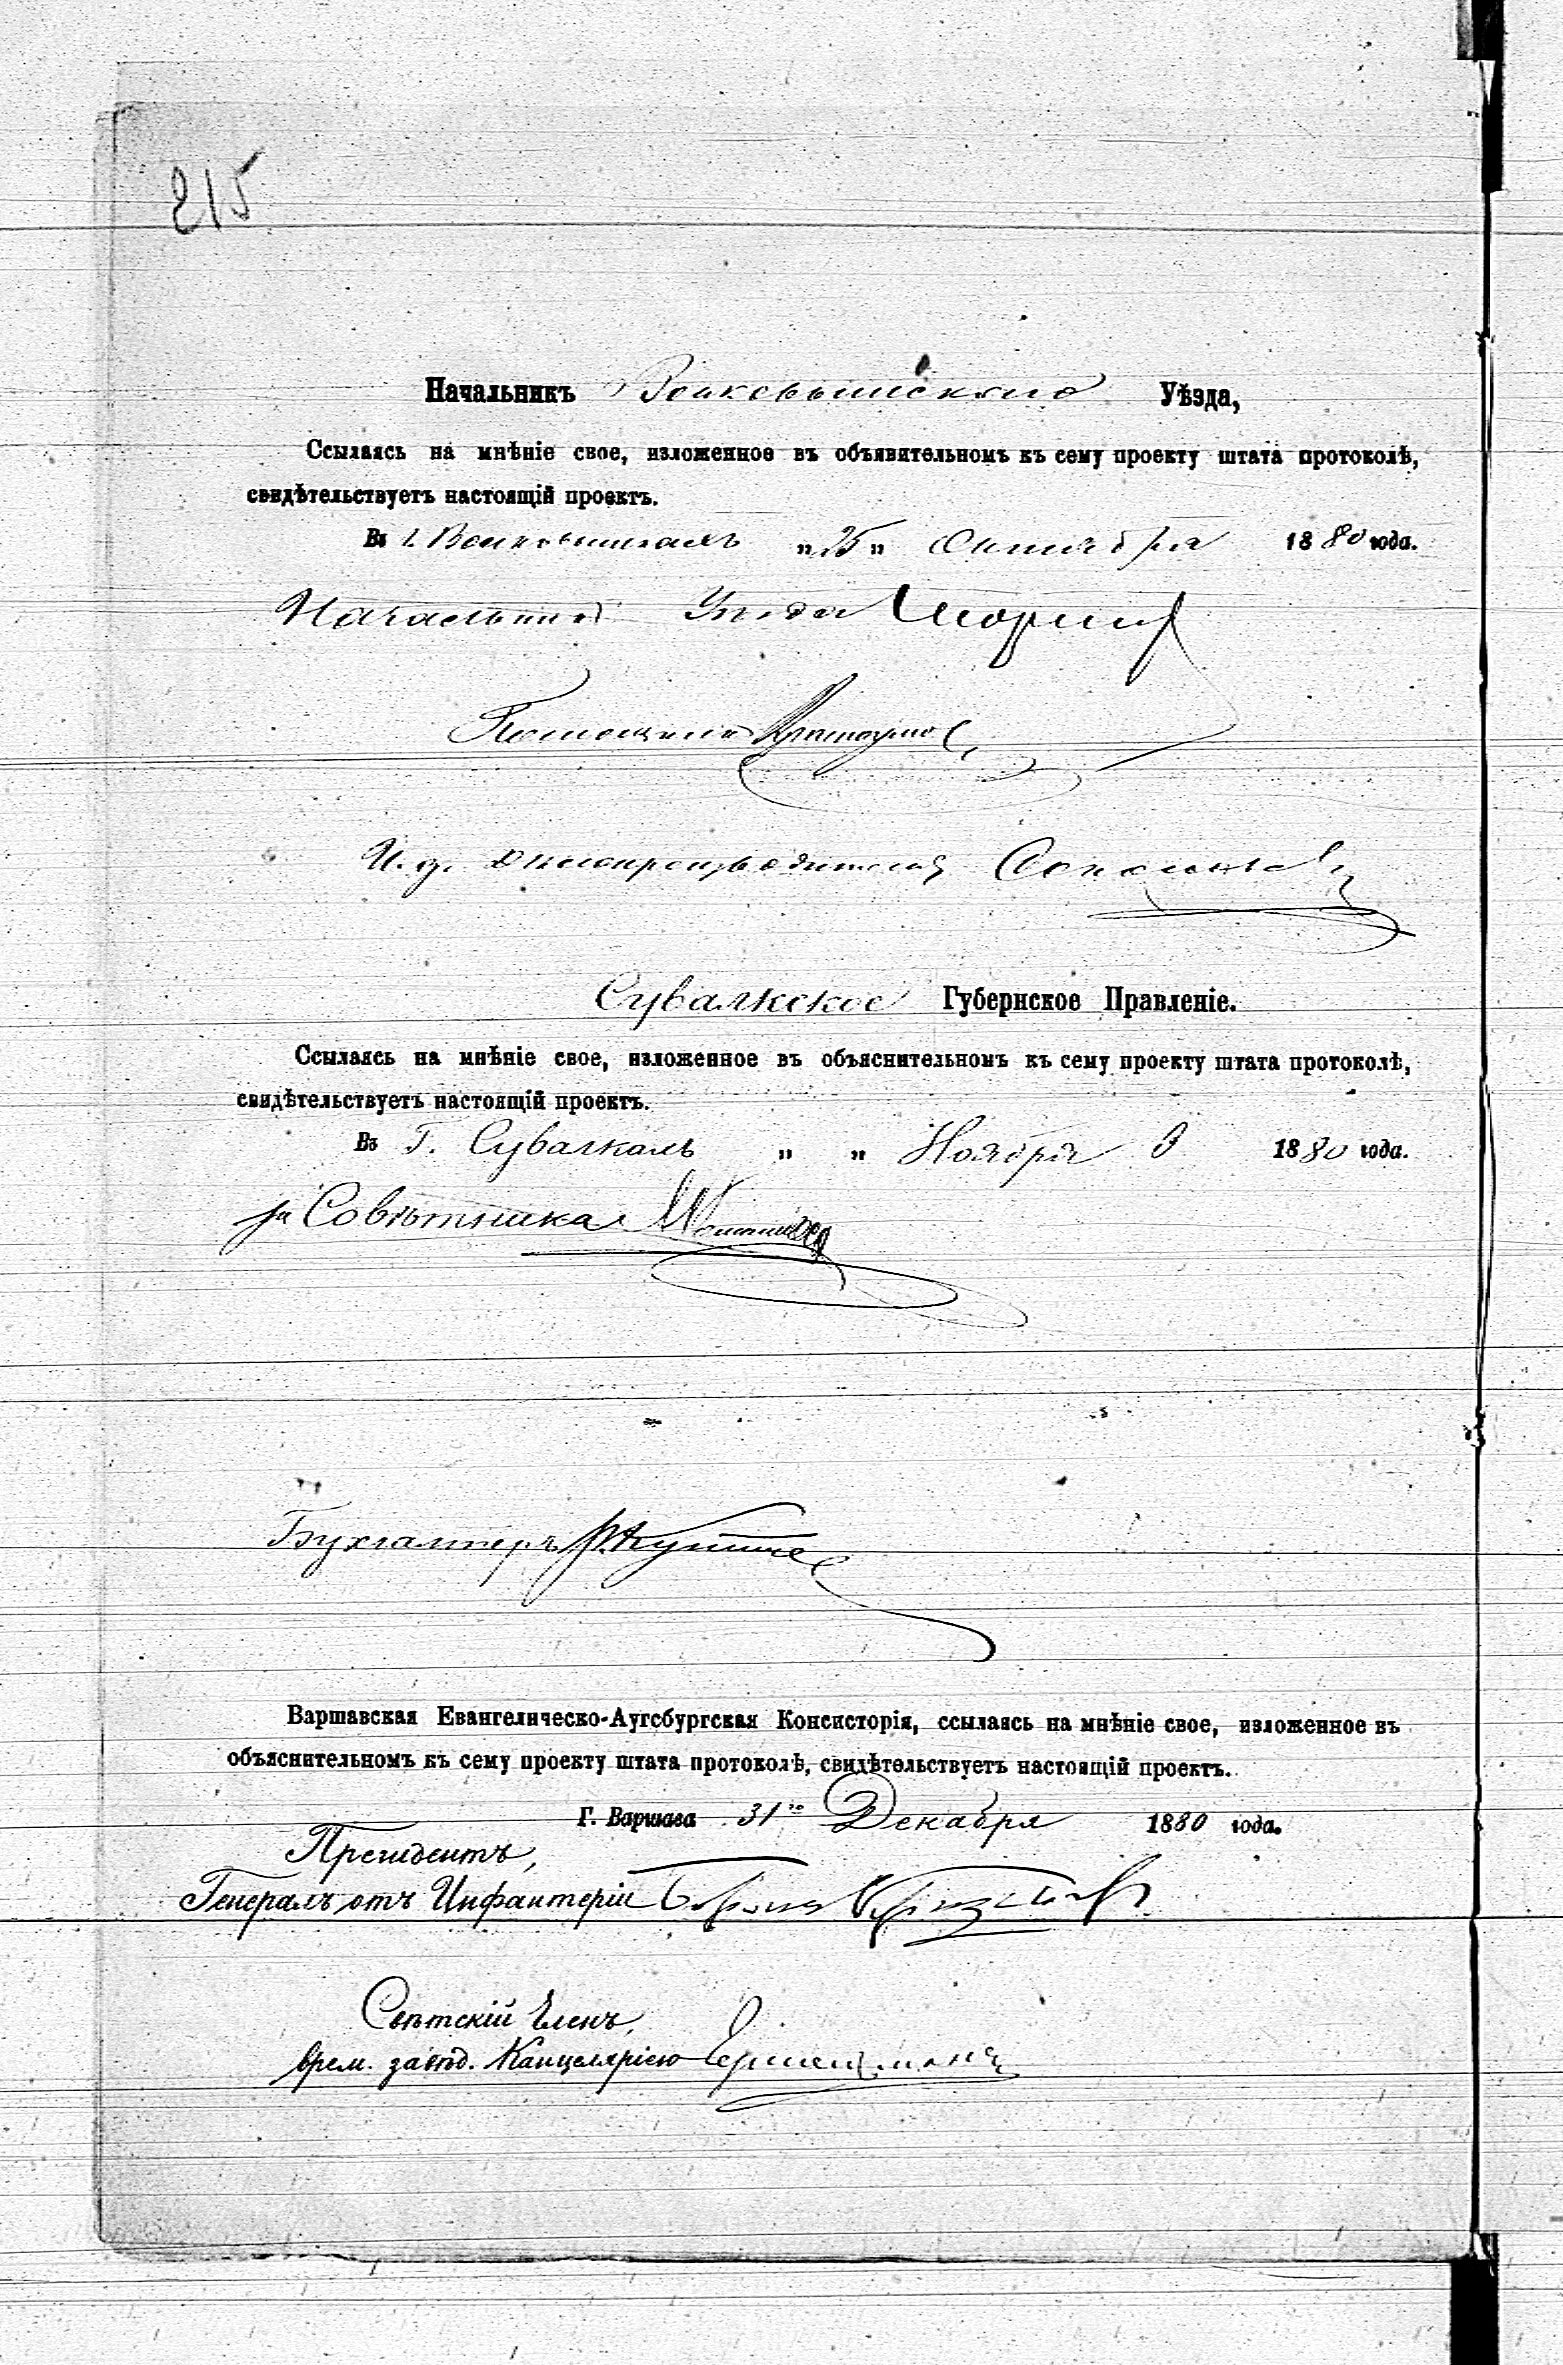 215
Начальникъ Волковышскаго Уѣзда,
Ссылаясь на мнѣніе свое, изложенное въ объявительномъ къ сему проекту штата протоколѣ,
свидѣтельствуетъ настоящій проектъ.
Въ г. Волковышкахъ „25„ Октября 1880 года.
Начальникъ Уѣзда
Помощникъ
И. д. Дѣлопроизводителя
Сувалкское Губернское Правленіе.
Ссылаясь на мнѣніе свое, изложенное въ объяснительномъ къ сему проекту штата протоколѣ,
свидѣтельствуетъ настоящій проектъ.
Въ Г. Сувалкахъ „ „ Ноября 1880 года.
за Совѣтника
Бухгалтеръ
Варшавская Евангелическо-Аугсбургская Консисторія, ссылаясь на мнѣніе свое, изложенное въ
объяснительномъ къ сему проекту штата протоколѣ, свидѣтельствуетъ настоящій проектъ.
Г. Варшава 31го Декабря 1880 года.
Президентъ,
Генералъ отъ Инфантеріи Баронъ
Свѣтскій Членъ,
врем. завѣд. Канцеляріею